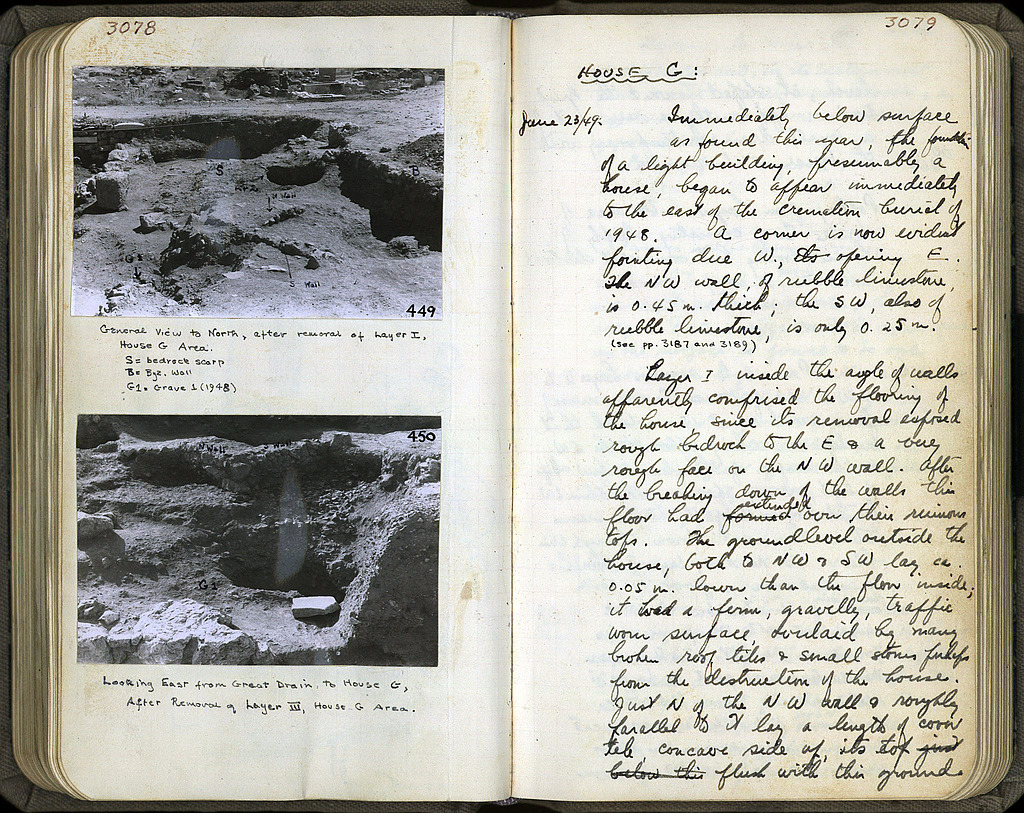 3078
S
B
N Wall
G1
S Wall
449
General View to North, after removal of Layer I,
House G Area.
S = bedrock scarp
B = Byz. Wall
G1 = Grave 1 (1948)
450
N Wall
Wall
G1
Looking East from Great Drain, to House G,
After Removal of Layer III, House G Area.
3079
HOUSE G:
June 23/49. Immediately below surface
as found this year, the
of a light building, presumably a
house, began to appear immediately
to the east of the cremation burial of
1948. A corner is now evident
pointing due W., opening E.
The NW wall, of rubble limestone,
is 0.45 m. thick; the SW, also of
rubble limestone, is only 0.25 m.
(see pp. 3187 and 3189)
Layer I inside the angle of walls
apparently comprised the flooring of
the house, since its removal exposed
rough bedrock to the E & a very
rough face on the NW wall. After
the breaking down of the walls this
extended
floor had formed over their ruinous
tops. The ground level outside the
house, both to NW & SW lay ca.
0.05 m. lower than the floor inside;
it had a firm, gravelly, traffic
worn surface, overlaid by many
broken roof tiles & small stones perhaps
from the destruction of the house.
Just N of the NW wall & roughly
parallel to it lay a length of cover
tile, concave side up, its top just
below this flush with this ground